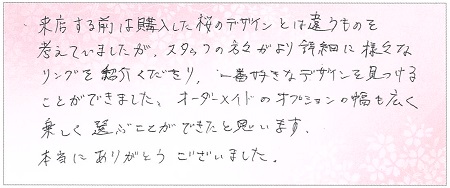 来店する前は購入した桜のデザインとは違うものを
考えていましたが、スタッフの方々がより詳細に様々な
リングを紹介くださり、一番好きなデザインを見つける
ことができました、オーダーメイドのオプションの幅も広く
楽しく選ぶことができたと思います.
本当にありがとうございました.